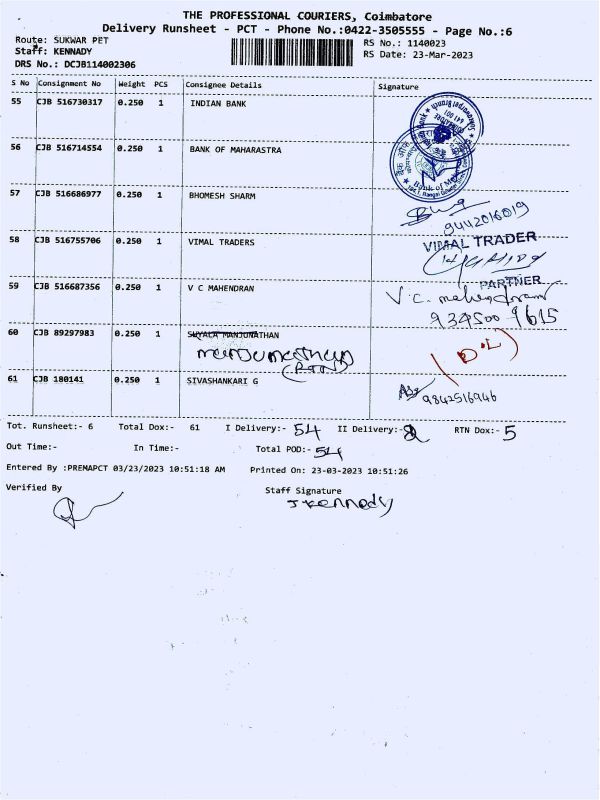 THE PROFESSIONAL COURIERS, Coimbatore
Delivery Runsheet - PCT - Phone No.:0422-3505555 - Page No.:6
Route: SUKWAR PET
RS No.: 1140023
Staff: KENNADY
RS Date: 23-Mar-2023
DRS No.: DCJB114002306
S No Consignment No Weight PCS Consignee Details Signature
55 CJB 516730317 0.250 1 INDIAN BANK
56 CJB 516714554 0.250 1 BANK OF MAHARASTRA
Bank of
57 CJB 516686977 0.250 1 BHOMESH SHARM
9442016019
58 CJB 516755706 0.250 1 VIMAL TRADERS VIMAL TRADER
PARTNER
59 CJB 516687356 0.250 1 V C MAHENDRAN V.C. mahendran
934500 9615
60 CJB 89297983 0.250 1 SUYALA MANJUNATHAN
(RTN)
(D.L)
61 CJB 180141 0.250 1 SIVASHANKARI G
9842516946
Tot. Runsheet:- 6 Total Dox:- 61 I Delivery:- 54 II Delivery:- 2 RTN Dox:- 5
Out Time:- In Time:- Total POD:- 54
Entered By :PREMAPCT 03/23/2023 10:51:18 AM Printed On: 23-03-2023 10:51:26
Verified By Staff Signature
J Kennedy